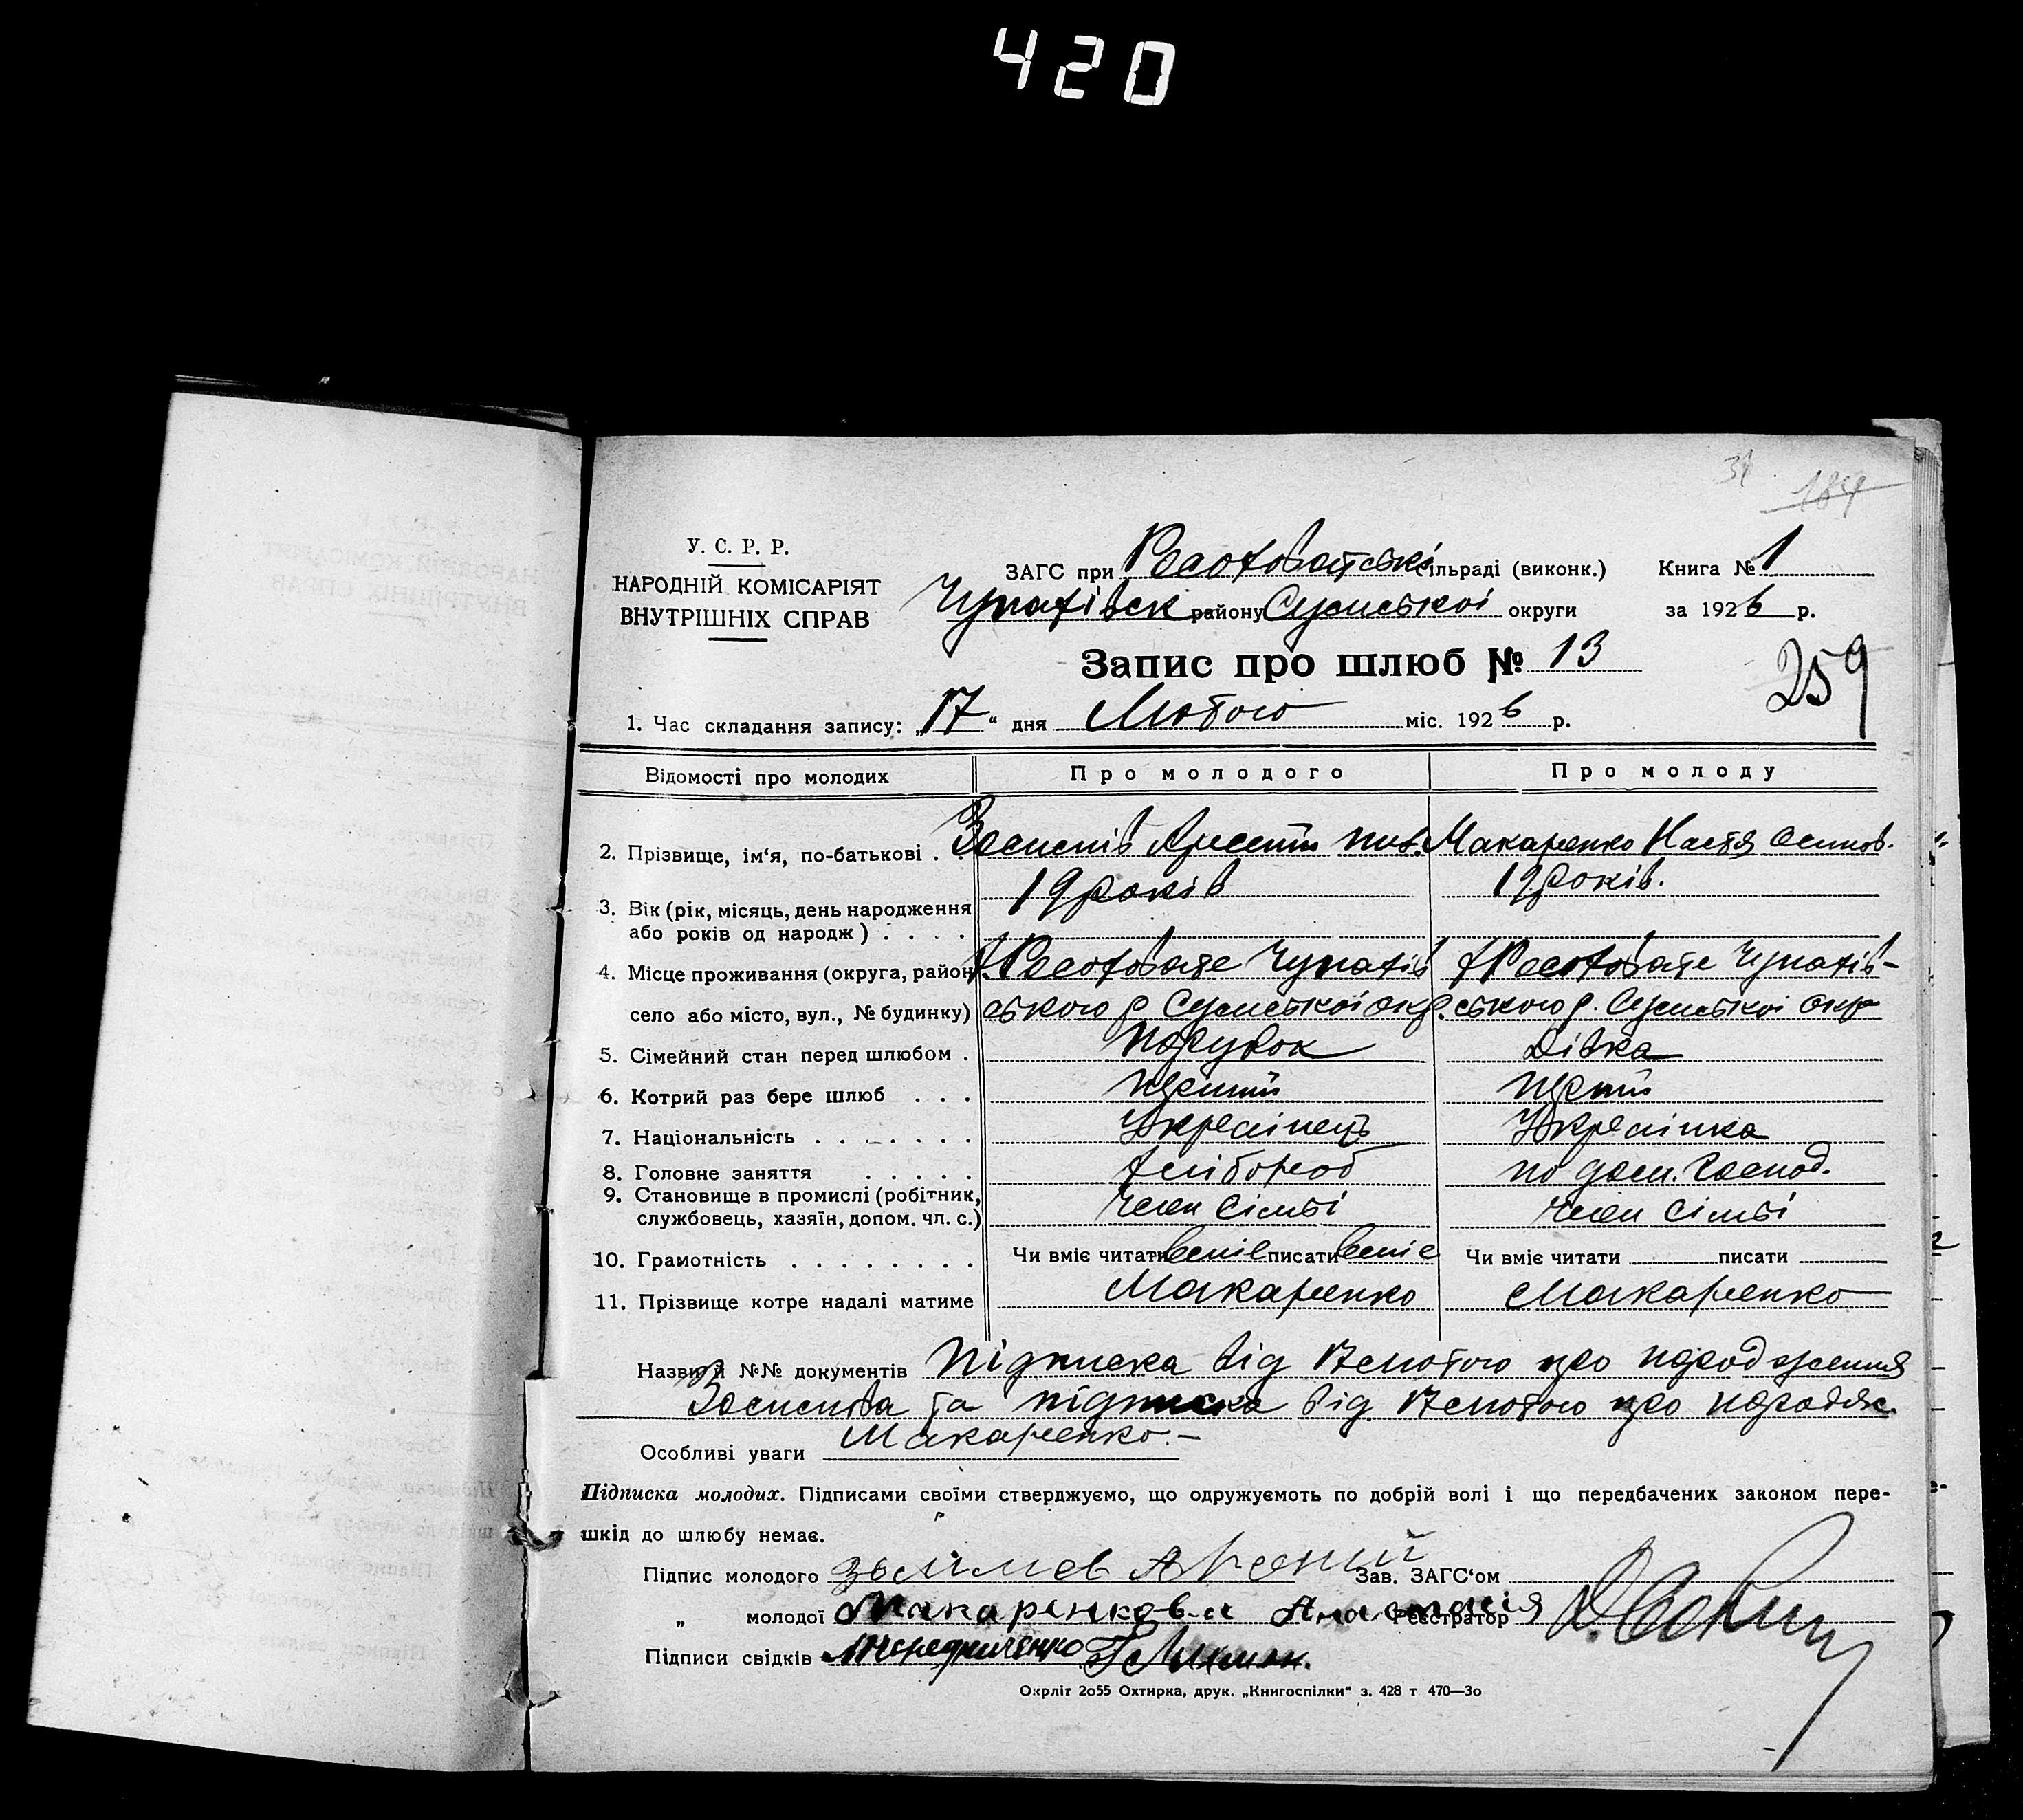 420
31 184
У. С. Р. Р.
НАРОДНІЙ КОМІСАРІЯТ
ВНУТРІШНІХ СПРАВ
ЗАГС при сільраді (виконк.) Книга № 1
Чупахівск району Сумської округи за 1926 р.
Запис про шлюб № 13
259
1. Час складання запису: „17“ дня Лютого міс. 1926 р.
Відомості про молодих Про молодого Про молоду
2. Прізвище, ім‘я, по-батькові . . Макаренко Настя Осипов.
3. Вік (рік, місяць, день народження 19 років 19 років.
або років од народж) . . . .
4. Місце проживання (округа, район, Чупахів Чупахів-
село або місто, вул., № будинку) ського р Сумської окр. ського р. Сумської окр
5. Сімейний стан перед шлюбом . Парубок Дівка
6. Котрий раз бере шлюб . . .
7. Національність . . . . . . . Українець Українка
8. Головне заняття . . . . . хлібороб по дом. господ.
9. Становище в промислі (робітник, Член сімьі Член сімьі
службовець, хазяїн, допом. чл. с.)
10. Грамотність . . . . . . . . Чи вміє читати вміє писати вміє Чи вміє читати писати
11. Прізвище котре надалі матиме Макаренко Макаренко
Назви й №№ документів Підписка від 17 лютого про народження
та підписка від 17 лютого про народж.
Особливі уваги Макаренко. –
Підписка молодих. Підписами своїми стверджуємо, що одружуємоть по добрій волі і що передбачених законом пере-
шкід до шлюбу немає.
Підпис молодого Зав. ЗАГС‘ом
„ молодої Макаренкова Анастасія Реєстратор
Підписи свідків
Окрліт 2о55 Охтирка, друк. „Книгоспілки“ з. 428 т 470—3о